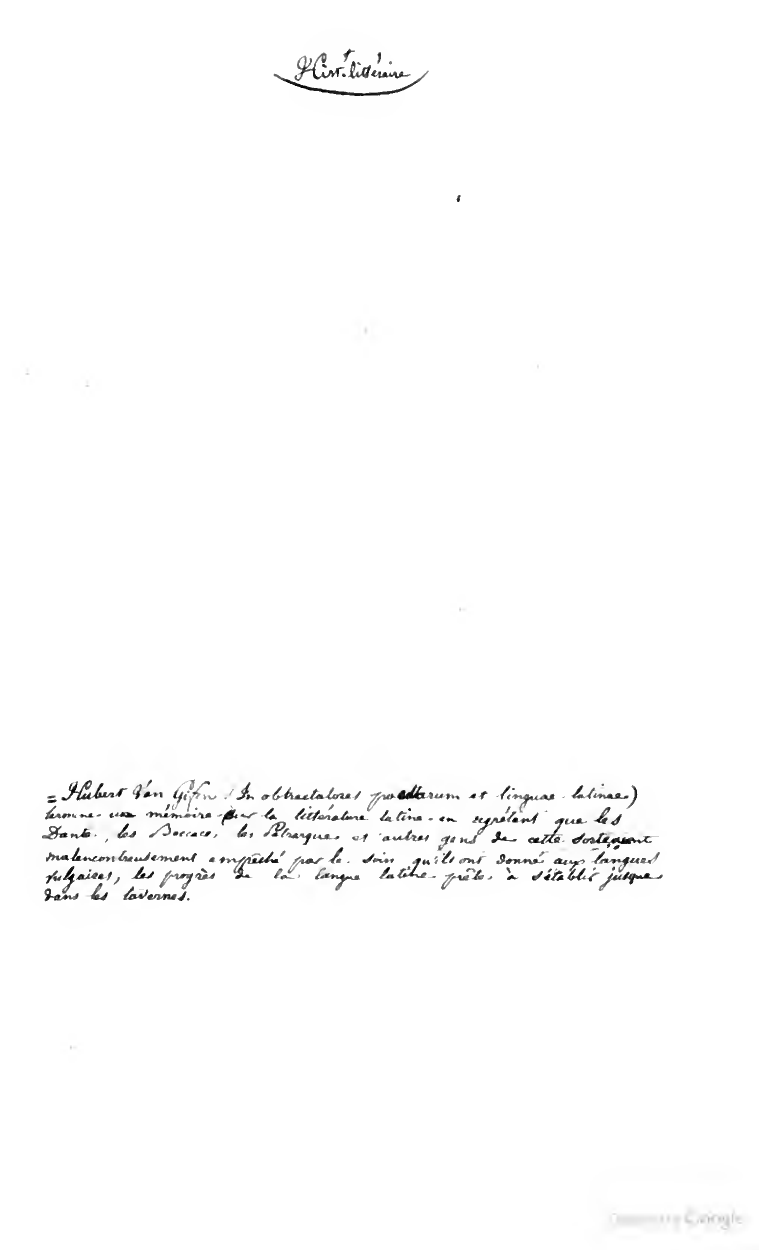 Hist. littéraire
= Hubert Van Gifen (In obtrectatores poetarum et linguae latinae)
termine un mémoire sur la littérature latine en regrétant que les
Dante, les Boccace, les Pétrarque et autres gens de cette sorte, aient
malencontreusement empêché par le soin qu'ils ont donné aux langues
vulgaires, les progrès de la langue latine prête à s'établir jusque
dans les tavernes.
Google